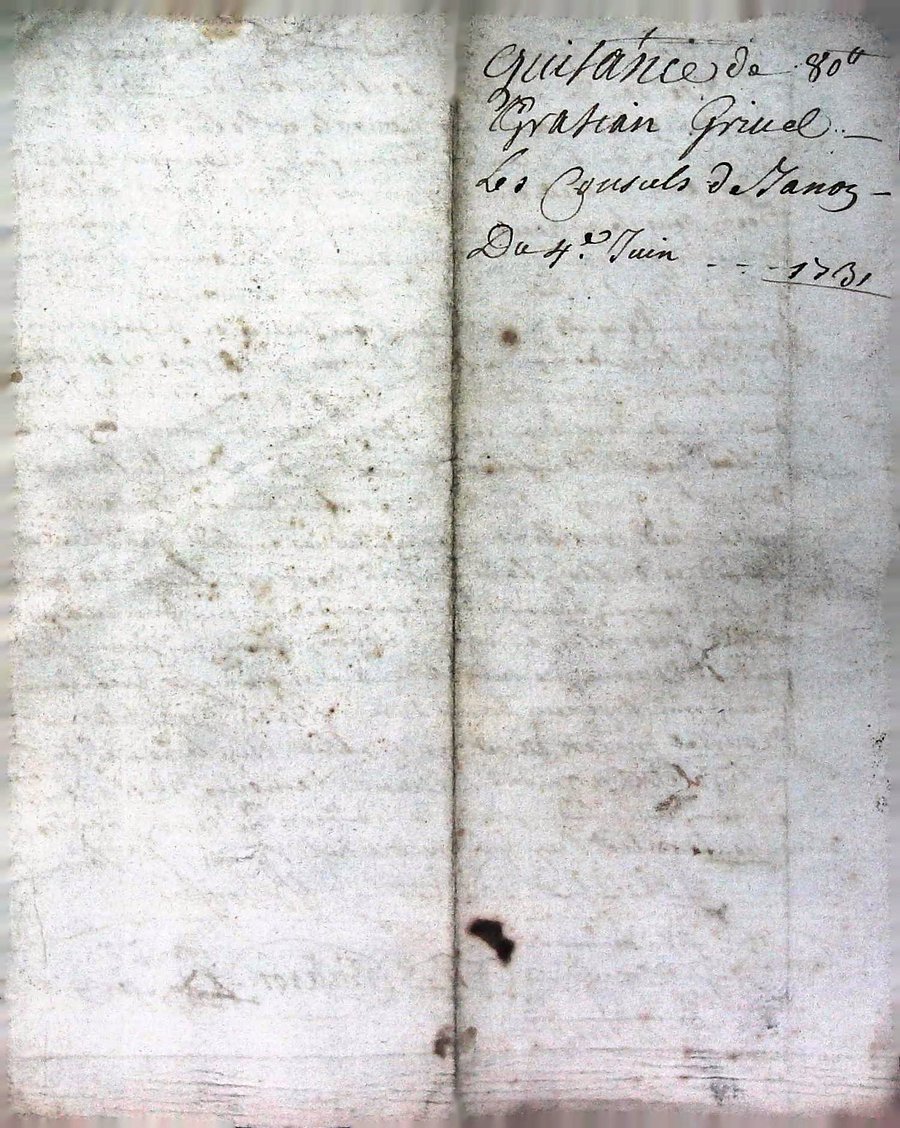 Quitance de 80tt
Gratian Griuel
Les Consuls de Janoz
Du 4e Juin 1731